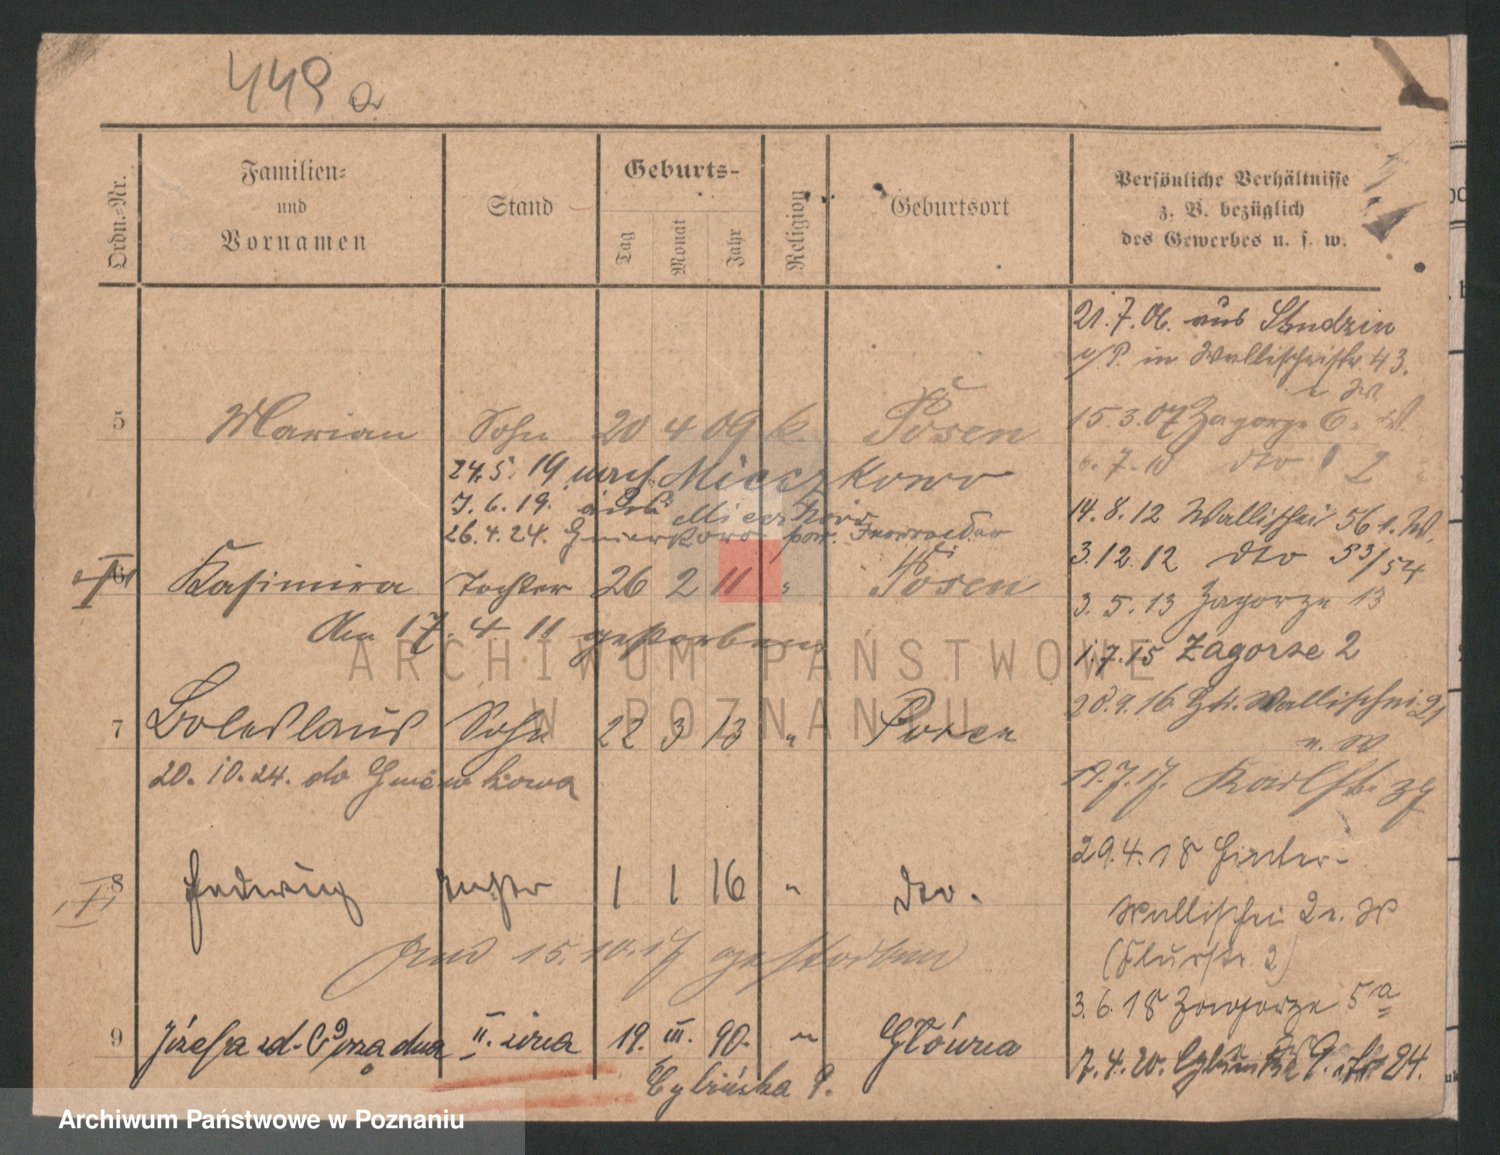 449 a
Ordn.-Nr.
Familien-
und
Vornamen
Stand
Geburts-
Tag
Monat
Jahr
Religion
Geburtsort
Persönliche Verhältnisse
z. B. bezüglich
des Gewerbes u. s. w.
21.7.06. aus Studzin
in Wallischeistr. 43.
u W.
5 Marian Sohn 20 4 09 k. Posen
15.3.07 Zagorze 6. W.
24.5.19 nach Mieczkowo
6.7.10 dto 2
7.6.19. aus Mieczkowo
14.8.12 Wallischei 56 b. W.
26.4.24. pow.
3.12.12 dto 53/54
6 Kasimira Tochter 26 2 11 " Posen
3.5.13 Zagorze 13
Am 17.4 11 gestorben
1.7.15 Zagorze 2
20.9.16. Wallischei 21
7 Boleslaus Sohn 22 3 13 " Posen
u. W
20.10.24. do
19.7.17. Karlstr. 39
29.4.18 Hinter-
8 Hedwig Tochter 1 1 16 " dto.
Wallischei 2 b. W
Am 15.10.17 gestorben
(Flurstr. 2)
3.6.18 Zagorze 5a
9 Józefa zd. II. żona 19. III. 90. " Główna
7.4.20. Cybińska 9. 24.
Cybińska 9.
ARCHIWUM PAŃSTWOWE
W POZNANIU
Archiwum Państwowe w Poznaniu